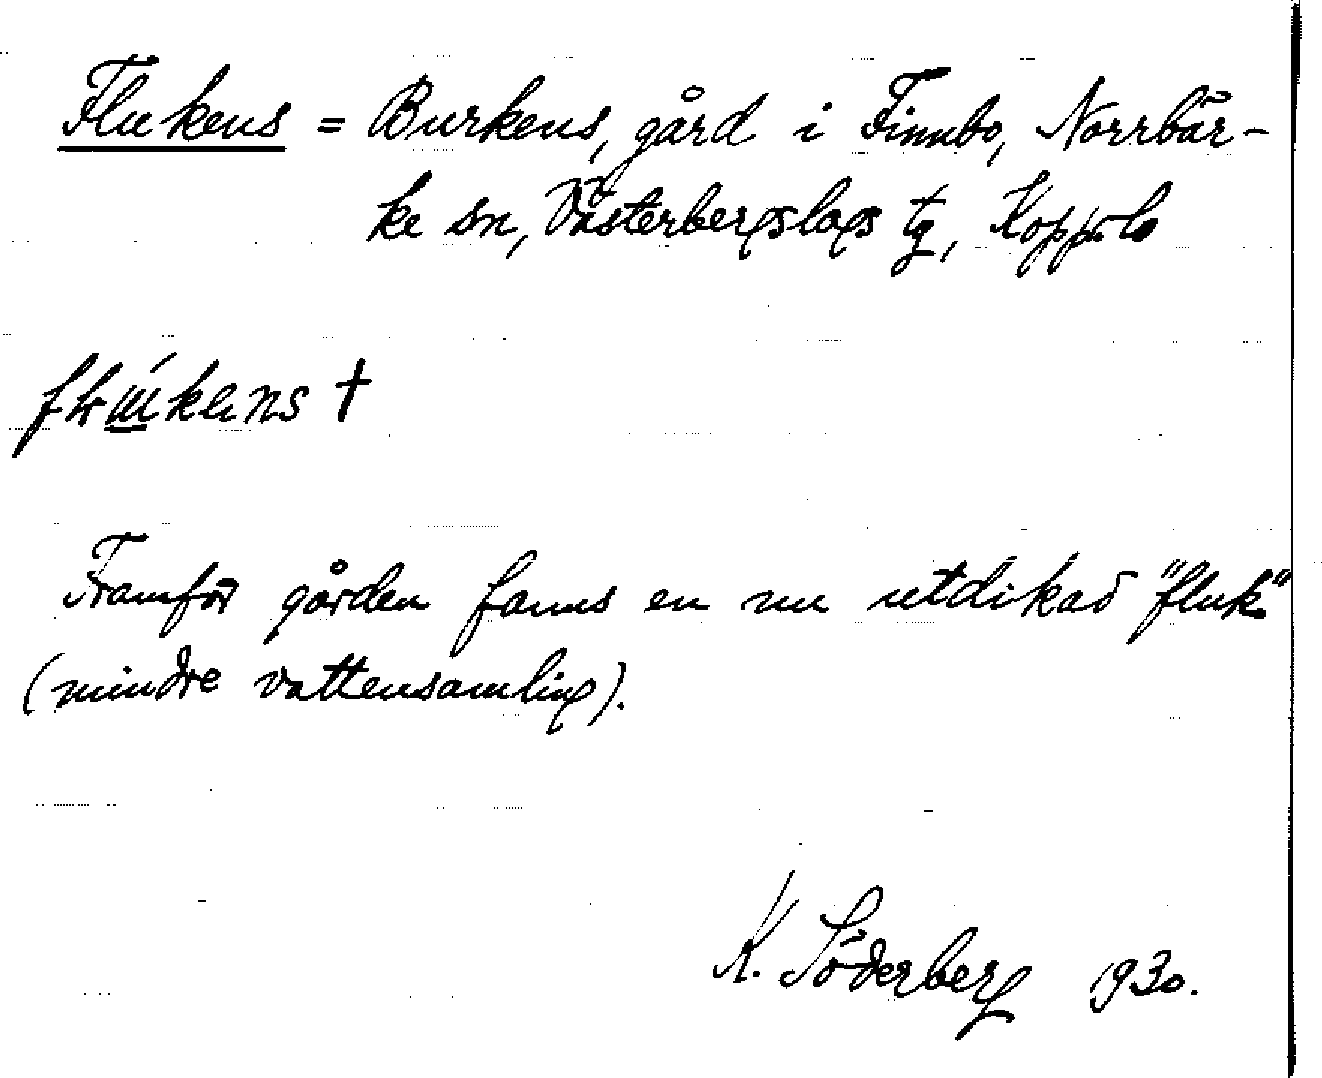 Flukens = Burkens, gård i Finnbo, Norrbär-
ke sn, Västerbergslags tg, Kopparb
†
Framför gården fanns en nu utdikad "fluk"
(mindre vattensamling).
K. Söderberg 1930.